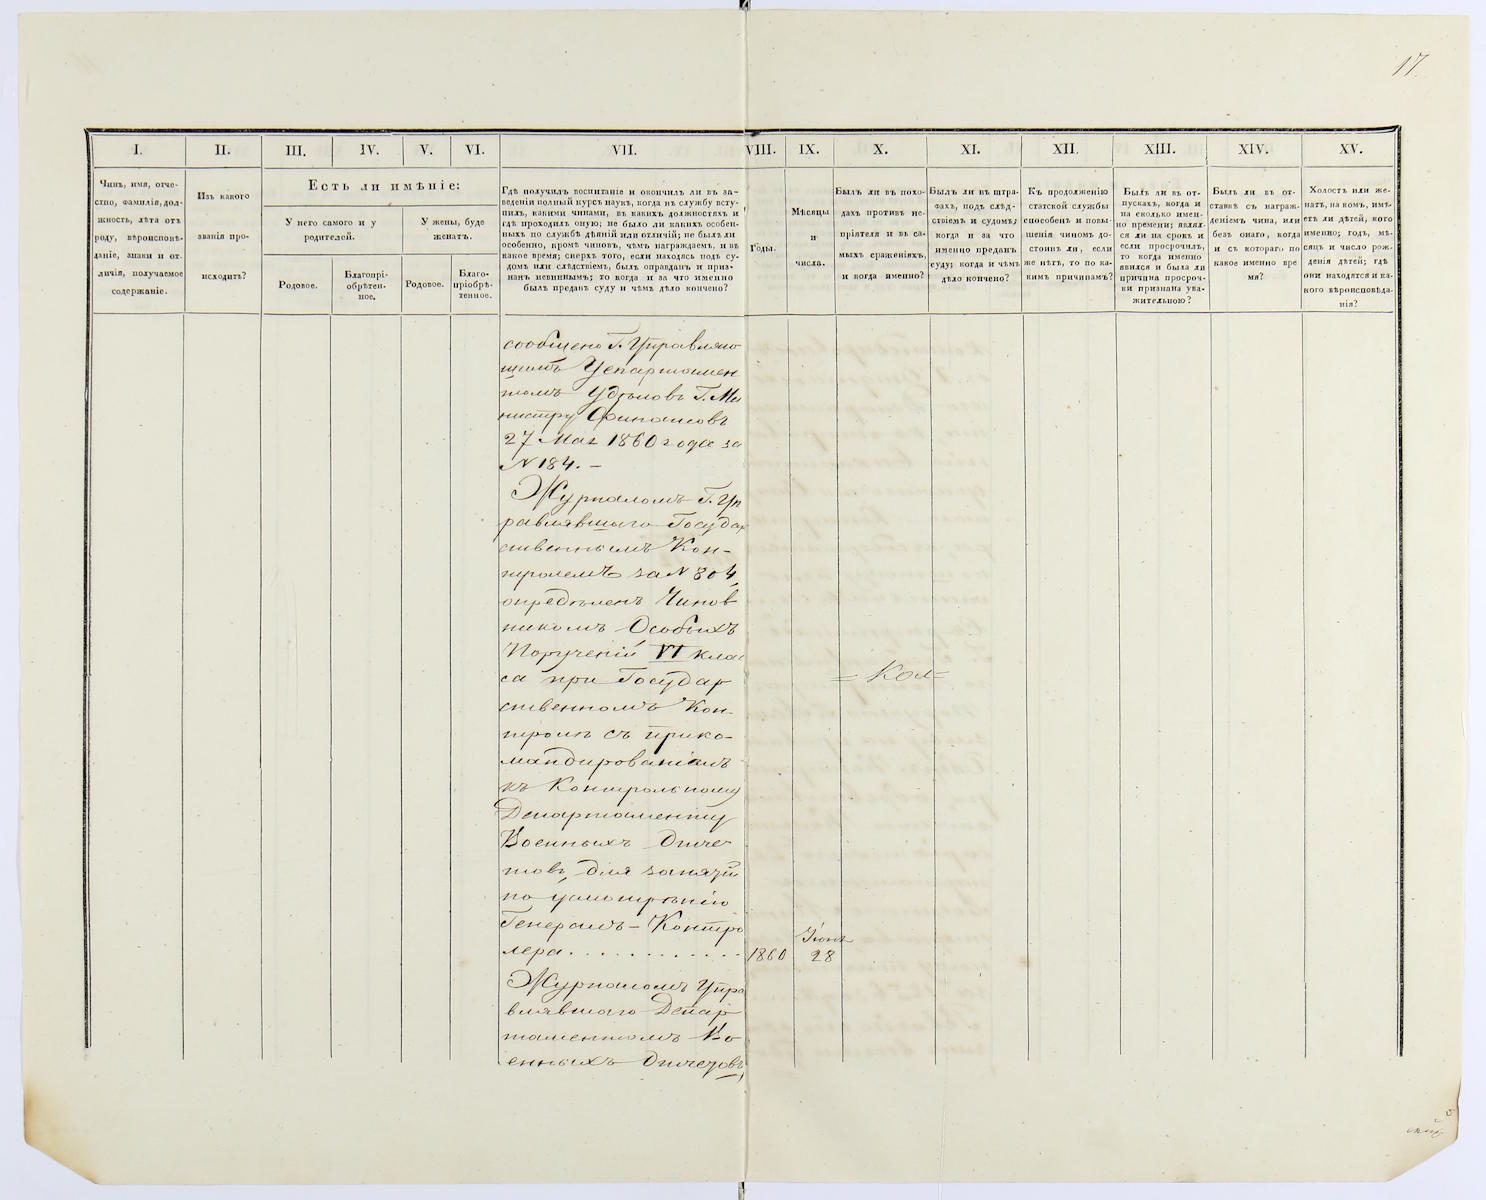 17.
I.
II.
III.
IV.
V.
VI.
VII.
VIII.
IX.
X.
XI.
XII.
XIII.
XIV.
XV.
Чинъ, имя, отче-
ство, фамилія, дол-
жность, лѣта отъ
роду, вѣроисповѣ-
даніе, знаки и от-
личія, получаемое
содержаніе.
Изъ какого
званія про-
исходитъ?
Есть ли имѣніе:
У него самого и у
родителей.
У жены, буде
женатъ.
Родовое.
Благопрі-
обрѣтен-
ное.
Родовое.
Благо-
пріобрѣ-
тенное.
Гдѣ получилъ воспитаніе и окончилъ ли въ за-
веденіи полный курсъ наукъ, когда въ службу всту-
пилъ, какими чинами, въ какихъ должностяхъ и
гдѣ проходилъ оную; не было ли какихъ особен-
ныхъ по службѣ дѣяній или отличій; не былъ ли
особенно, кромѣ чиновъ, чѣмъ награждаемъ, и въ
какое время; сверхъ того, если находясь подъ су-
домъ или слѣдствіемъ, былъ оправданъ и приз-
нанъ невиннымъ; то когда и за что именно
былъ преданъ суду и чѣмъ дѣло кончено?
Годы.
Мѣсяцы
и
числа.
Былъ ли въ похо-
дахъ противъ не-
пріятеля и въ са-
мыхъ сраженіяхъ,
и когда именно?
Былъ ли въ штра-
фахъ, подъ слѣд-
ствіемъ и судомъ;
когда и за что
именно преданъ
суду; когда и чѣмъ
дѣло кончено?
Къ продолженію
статской службы
способенъ и повы-
шенія чиномъ до-
стоинъ ли, если
же нѣтъ, то по ка-
кимъ причинамъ?
Былъ ли въ от-
пускахъ, когда и
на сколько имен-
но времени; являл-
ся ли на срокъ и
если просрочилъ,
то когда именно
явился и была ли
причина просроч-
ки признана ува-
жительною?
Былъ ли въ от-
ставкѣ съ награж-
деніемъ чина, или
безъ онаго, когда
и съ котораго по
какое именно вре
мя?
Холостъ или же-
натъ, на комъ, имѣ-
етъ ли дѣтей; кого
именно; годъ, мѣ-
сяцъ и число рож-
денія дѣтей; гдѣ
они находятся и ка-
кого вѣроисповѣда-
нія?
сообщено Г. Управляю
щимъ Департамен
томъ Удѣловъ Г. Ми
нистру Финансовъ
27 Мая 1860 года за
№ 184. –
Журналомъ Г. Уп
равлявшаго Государ
ственнымъ Кон-
тролемъ за № 304,
опредѣленъ Чинов
никомъ Особыхъ
Порученій VI клас
са при Государ
ственномъ Кон-
тролѣ съ прико-
мандированіемъ
къ Контрольному
Департаменту
Военныхъ Отче-
товъ, для занятій
по усмотрѣнію
Генералъ-Контро
лера............
1860
Іюня
28
Журналомъ Упра
влявшаго Депар
таментомъ Во
енныхъ Отчетовъ,
= Кол =